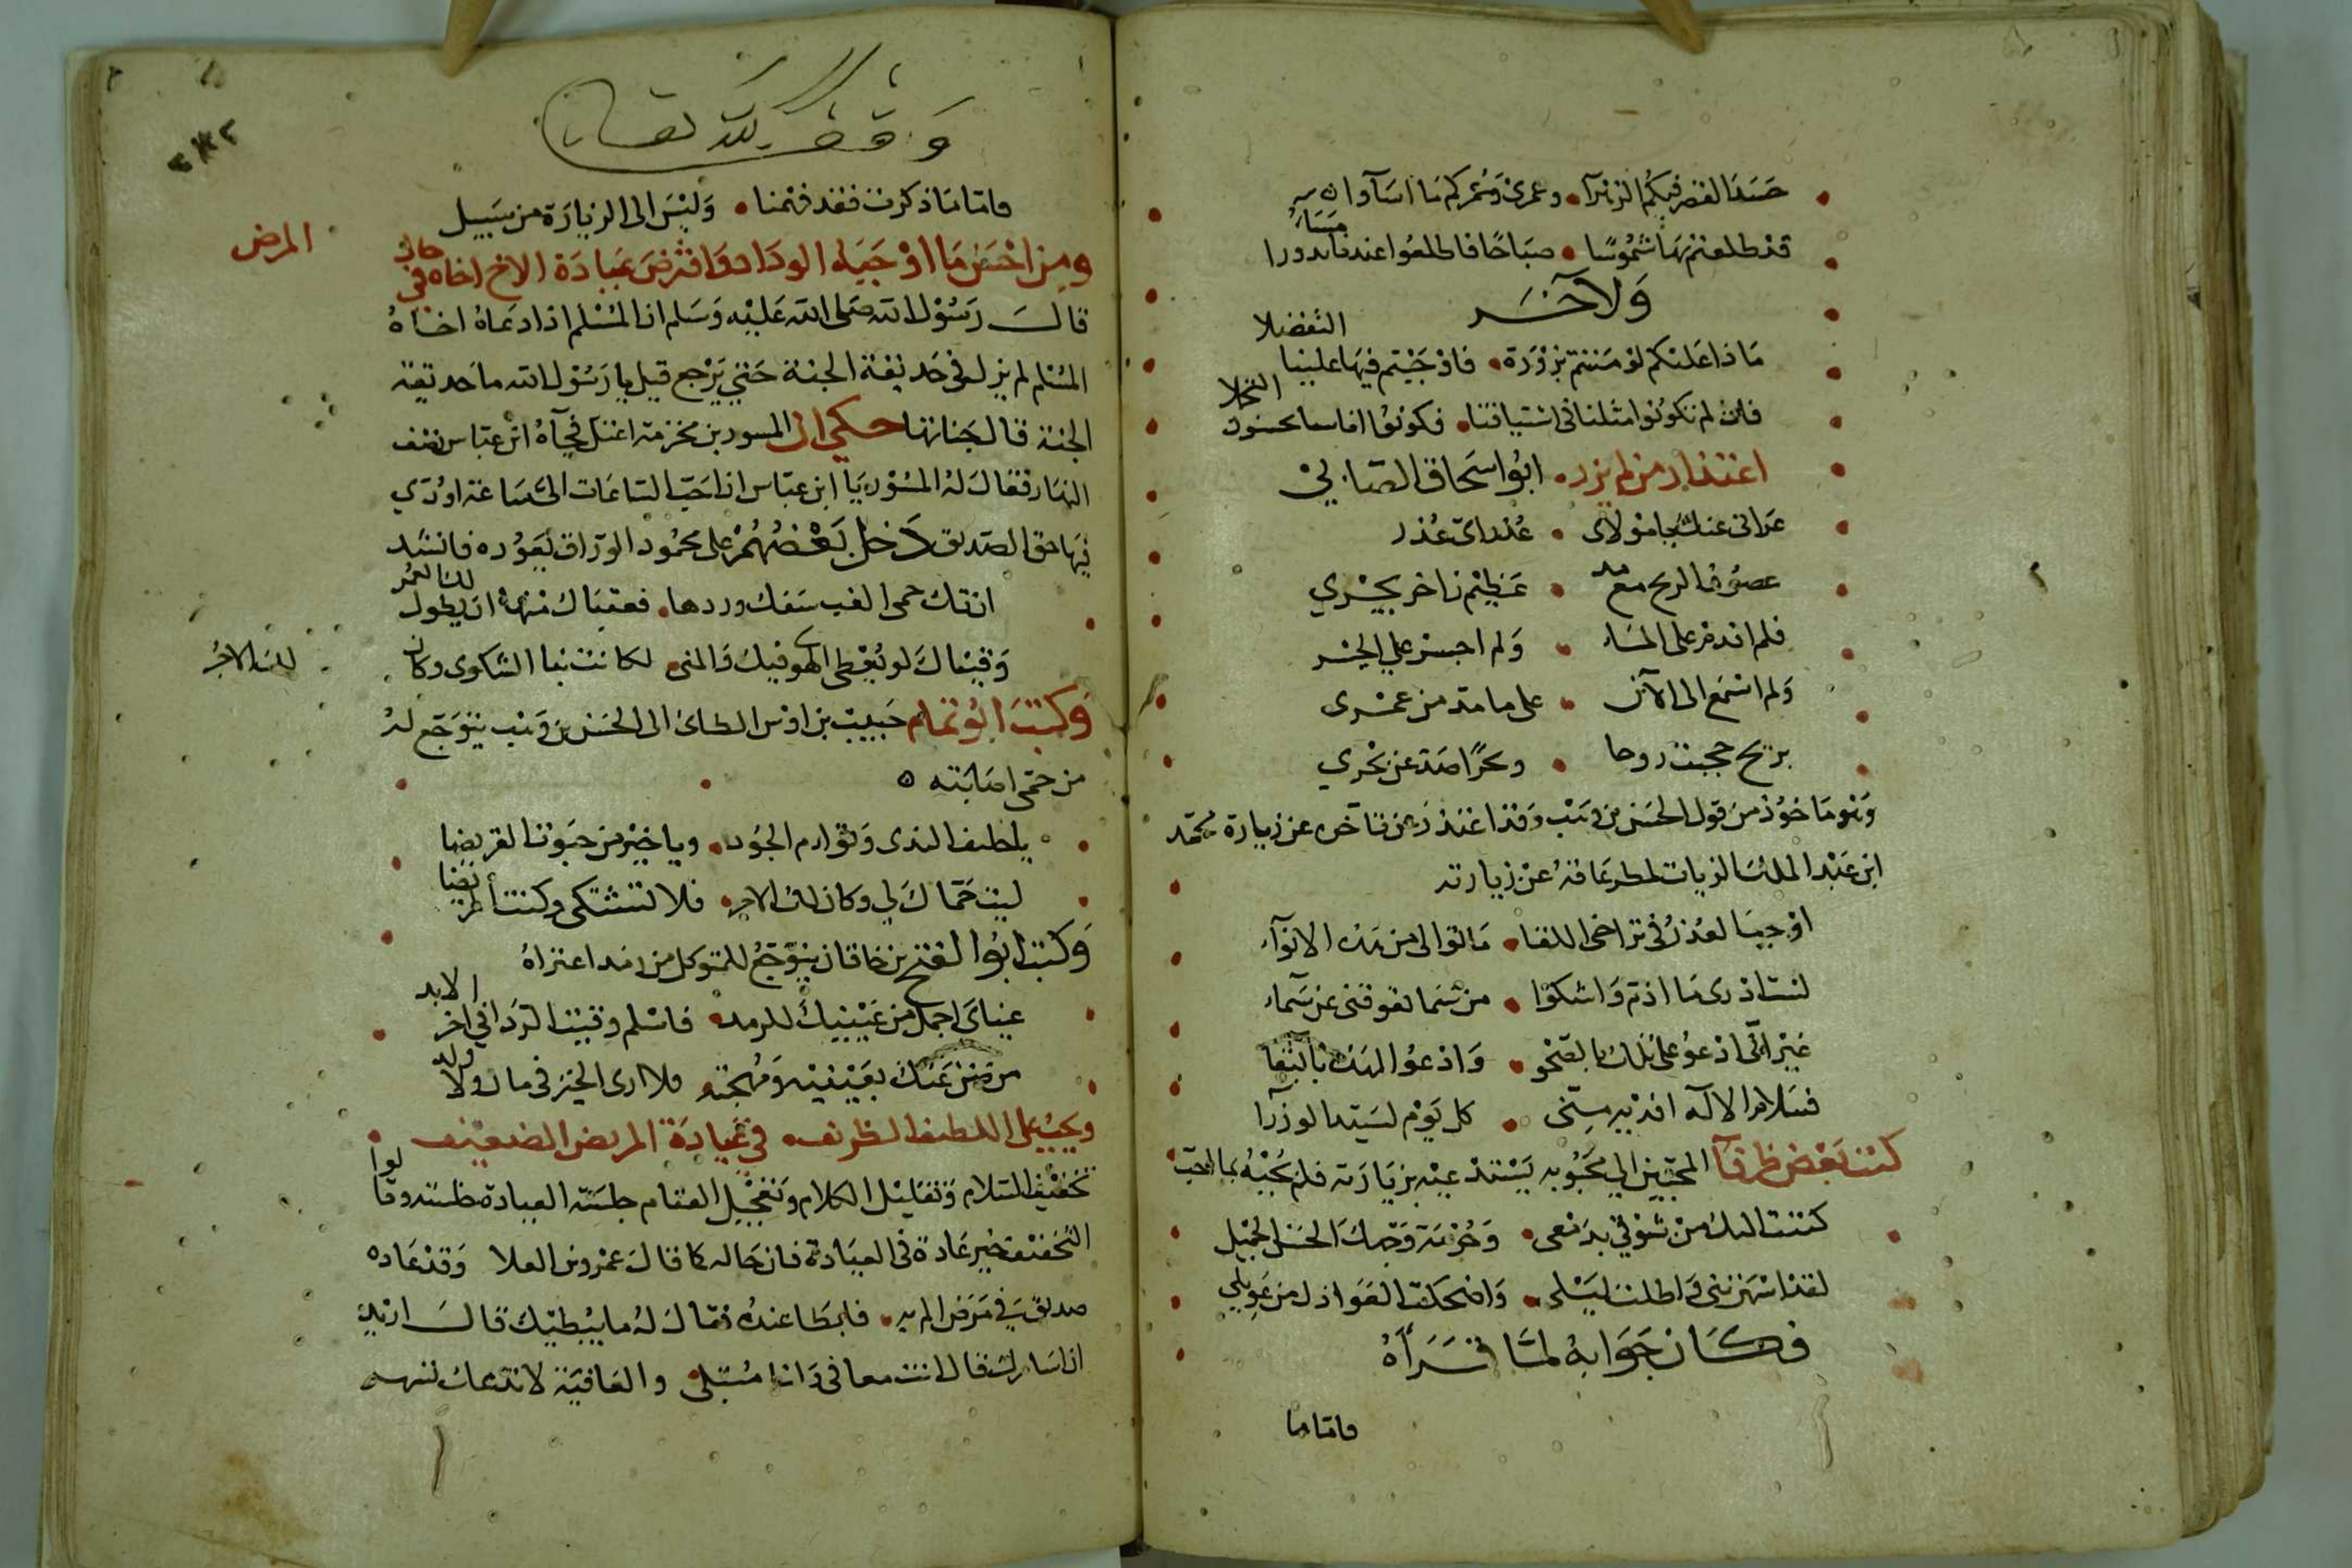 حسد القصر فيكم الزهرآ • وعمري وعمركم ما اسآوا
قد طلعتم بها شموسًا • صباحًا فاطلعوا عندنا بدورا مسآء
ولآخر
ماذا عليكم لو مننتم بزورة • فاوجبتم فيها علينا التفضلا
فان لم تكونوا مثلنا في اشتياقنا • فكونوا اناسا تحسنون التجملا
اعتذار من لم يزر • ابوا سحاق الصابي
عداني عنك يا مولاى • عذر اىّ عذر
عصوف الريح مع مد • عظيم زاخر يجري
فلم اقدم على المسا • ولم اجسر على الجسر
ولم اسمع الى الآن • على ما مدّ من عمرى
بريح حجبت روحا • وبحرًا صد عن بحري
وهو ماخوذ من قول الحسن بن وهب وقد اعتذر من تاخره عن زيارة محمد
ابن عبد الملك الزيات لمطر عاقه عن زيارته
اوجب العذر في تراخى اللقا • ما توالى من هذه الانوآء
لست ادرى ما اذم واشكوا • من سما تعوقنى عن سمآء
غير انّى ادعو على تلك بالصحو • وادعو لهذه بالبقا
فسلام الاله اهديه منّى • كل يوم لسيّد الوزرآ
كتب بعض ظرفآ المحبين الي محبوبه يستدعيه بزيارته فلم يجبه بما احبّ
كتبت اليك من شوقي بدمعى • وحرمة وجهك الحسن الجميل
لقد اسهرتنى واطلت ليلى • واضحكت العواذل من عويلي
فكان جوابه لما قرأه
فاما ما
وقف لله تعالى
فاما ما ذكرت فقد فهمنا • وليس الى الزيارة من سبيل
ومن احسن ما اوجبه الوداد وافترض عيادة الاخ اخاه في حال
المرض
قال رسول الله صلى الله عليه وسلم ان المسلم اذا دعاه اخاه
المسلم لم يزل في حديقة الجنة حتي يرجع قيل يا رسول الله ما حديقة
الجنة قال جناتها حكي ان المسور بن مخرمة اعتل فجآه ابن عباس نصف
النهار فقال له المسور يا ابن عباس ان احبّ الساعات الىّ ساعة اودّي
فيها حق الصديق دخل بعضهم على محمود الوراق يعوده فانشد
اتتك حمى الغب سقك وردها • فعقباك منها ان يطول لك العمر
وقيناك لو يعطى الهوى فيك والمنى • لكانت بنا الشكوى وكان
لك الاجر
وكتب ابو تمام حبيب بن اوس الطائ الى الحسن بن وهب يتوجع له
من حمّى اصابته ه
يا حليف الندى وتوام الجود • ويا خير من حبوت القريضا
ليت حمّاك لي وكان لك الاجر • فلا تشتكى وكنت المريضا
وكتب ابوا الفتح بن خاقان يتوجّع للمتوكل من رمد اعتراه
عيناى اجمل من عينيك للرمد • فاسلم وقيت الردا في اخر الابد
من ضن عنك بعينيه ومهجته • فلا ارى الخير في مال ولا ولد
ويجب على اللطيف الظريف في عيادة المريض الضعيف
تخفيف السلام وتقليل الكلام وتعجيل القيام جلسة العيادة خلسة وقالوا
التخفيف خير عادة في العيادة فان حاله كما قال عمرو بن العلا وقد عاده
صديق في مرض الم به • فابطا عنده فقال له ما يبطيك قال اريد
ان اسامرك قال انت معافى وانا مبتلى • والعافية لا تدعك تسهر